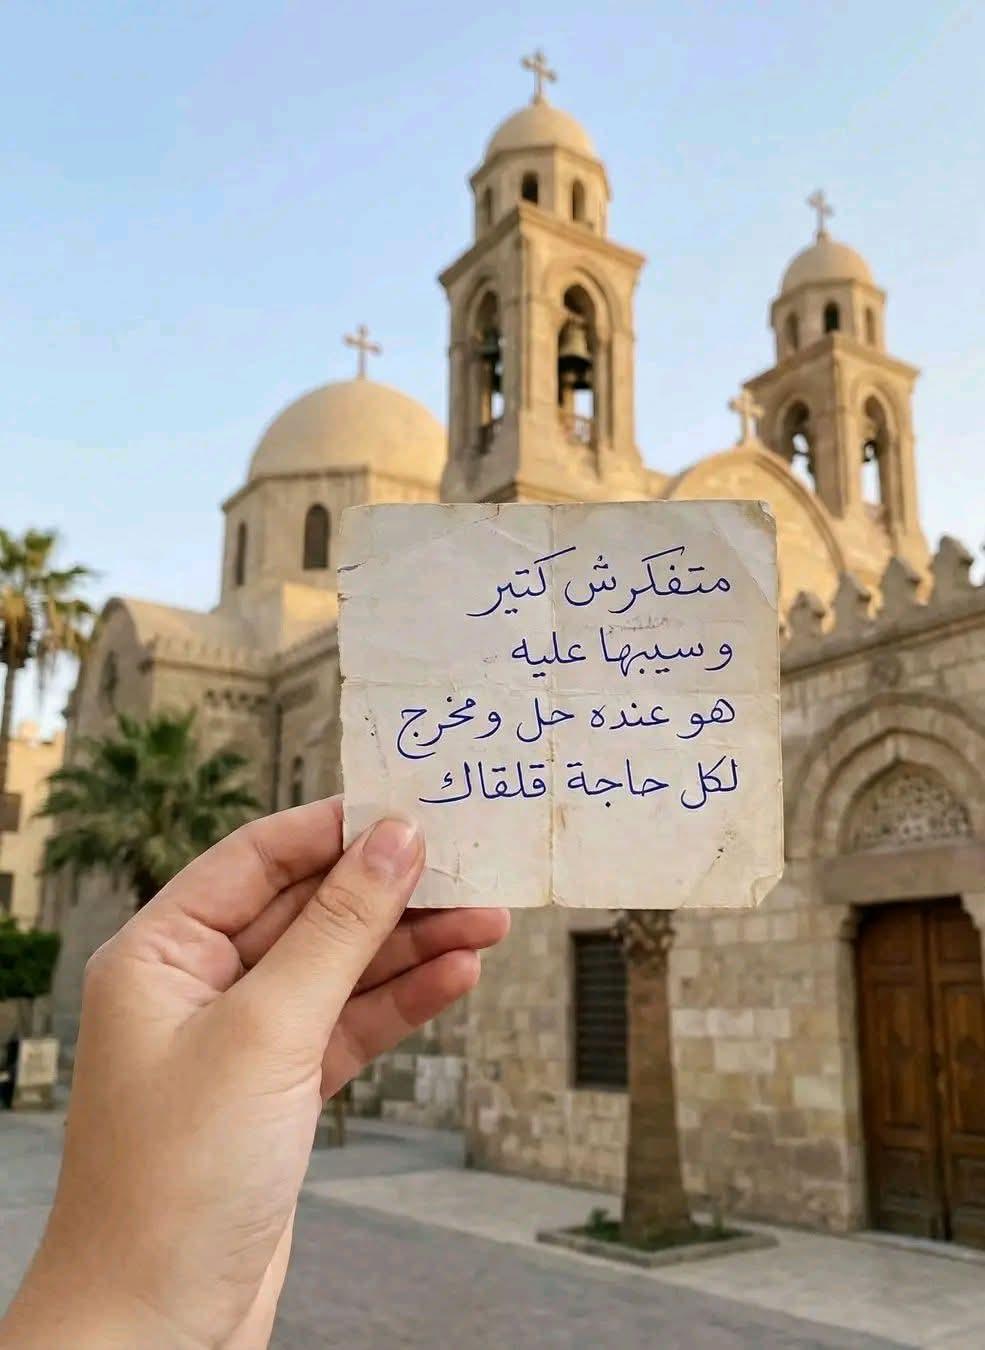 متفكرش كتير
وسيبها عليه
هو عنده حل ومخرج
لكل حاجة قلقاك